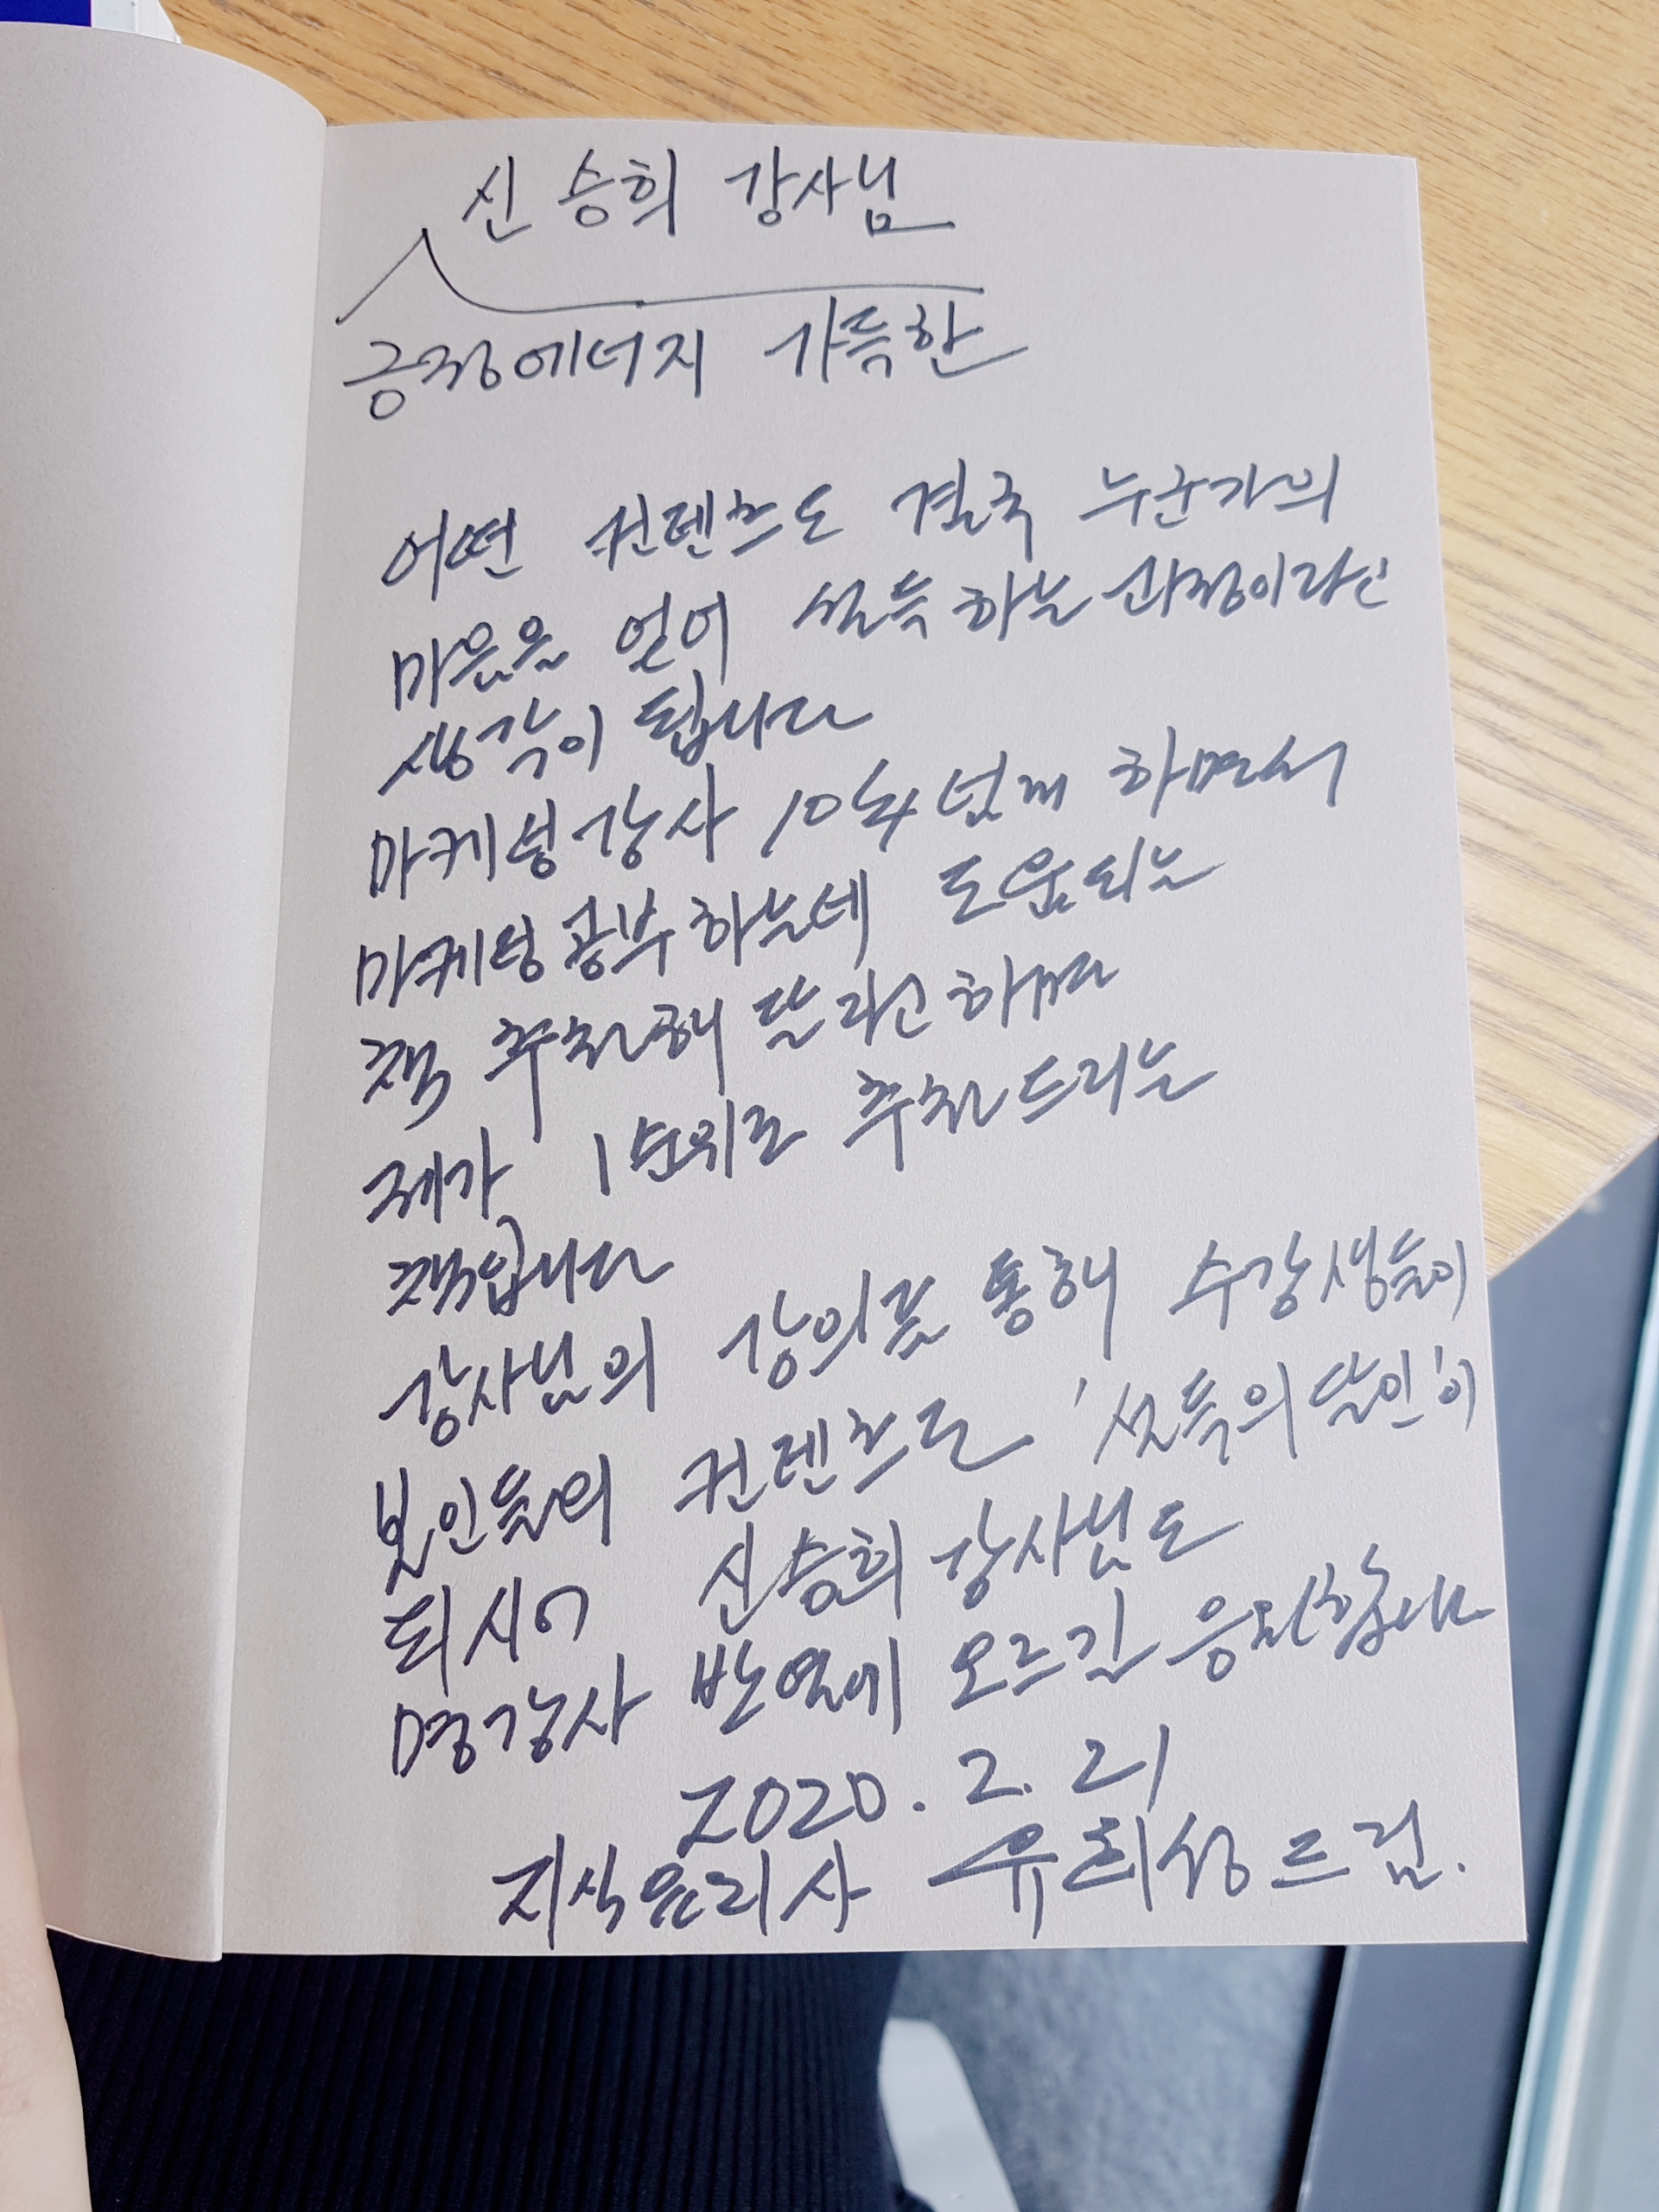 신승희 강사님
긍정에너지 가득한
어떤 컨텐츠도 결국 누군가의
마음을 얻어 설득하는 과정이라는
생각이 됩니다
마케팅강사 10年 넘게 하면서
마케팅공부하는데 도움되는
책 추천해 달라고 하면
제가 1순위로 추천드리는
책입니다
강사님의 강의를 통해 수강생들이
본인들의 컨텐츠로 '설득의 달인'이
되시어 신승희 강사님도
명강사 반열에 오르길 응원합니다
2020. 2. 21
지식요리사 유희성드림.